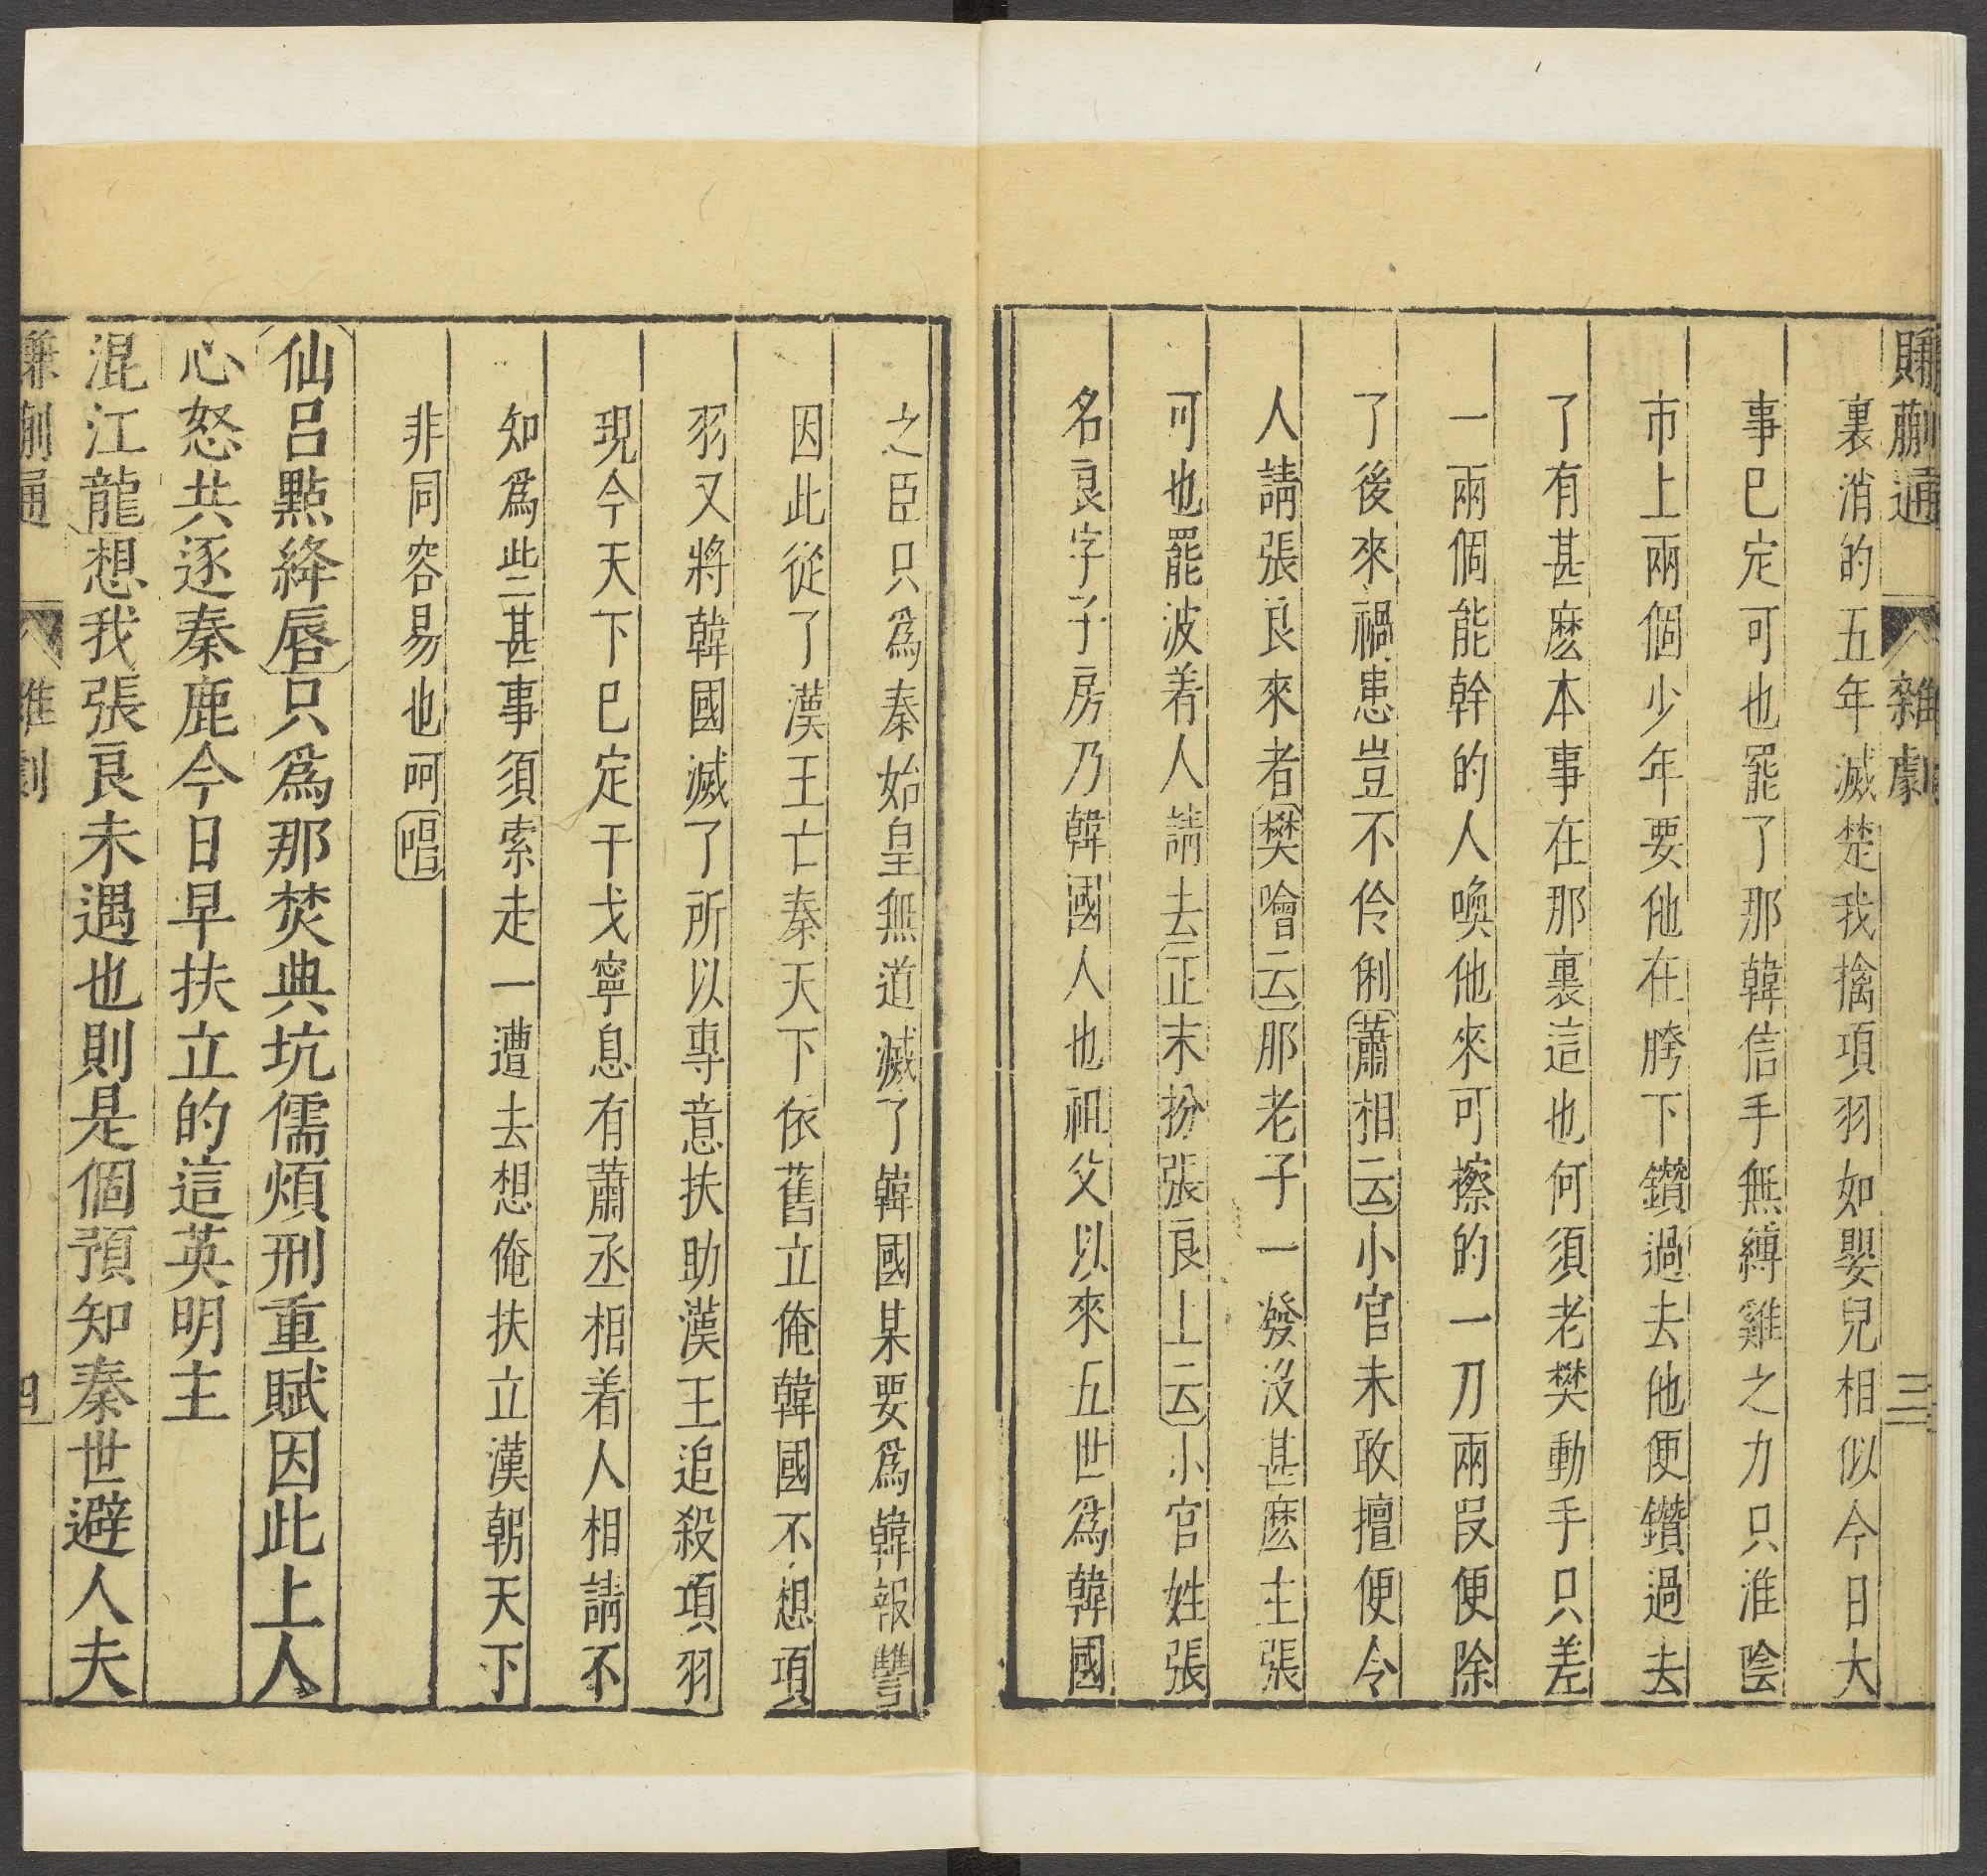 賺蒯通 雜劇 三
裏消的五年滅楚我擒項羽如嬰兒相似今日大
事已定可也罷了那韓信手無縛雞之力只淮陰
市上兩個少年要他在胯下鑽過去他便鑽過去
了有甚麽本事在那裏這也何須老樊動手只差
一兩個能幹的人喚他來可擦的一刀兩段便除
了後來禍患豈不伶俐蕭相云小官未敢擅便令
人請張良來者樊噲云那老子一發沒甚麽主張
可也罷波着人請去正末扮張良上云小官姓張
名良字子房乃韓國人也祖父以來五世爲韓國
之臣只爲秦始皇無道滅了韓國某要爲韓報讐
因此從了漢王亡秦天下依舊立俺韓國不想項
羽又將韓國滅了所以專意扶助漢王追殺項羽
現今天下已定干戈寧息有蕭丞相着人相請不
知爲些甚事須索走一遭去想俺扶立漢朝天下
非同容易也呵唱
仙呂點絳唇只爲那焚典坑儒煩刑重賦因此上人
心怒共逐秦鹿今日早扶立的這英明主
混江龍想我張良未遇也則是個預知秦世避人夫
賺蒯通 雜劇 四